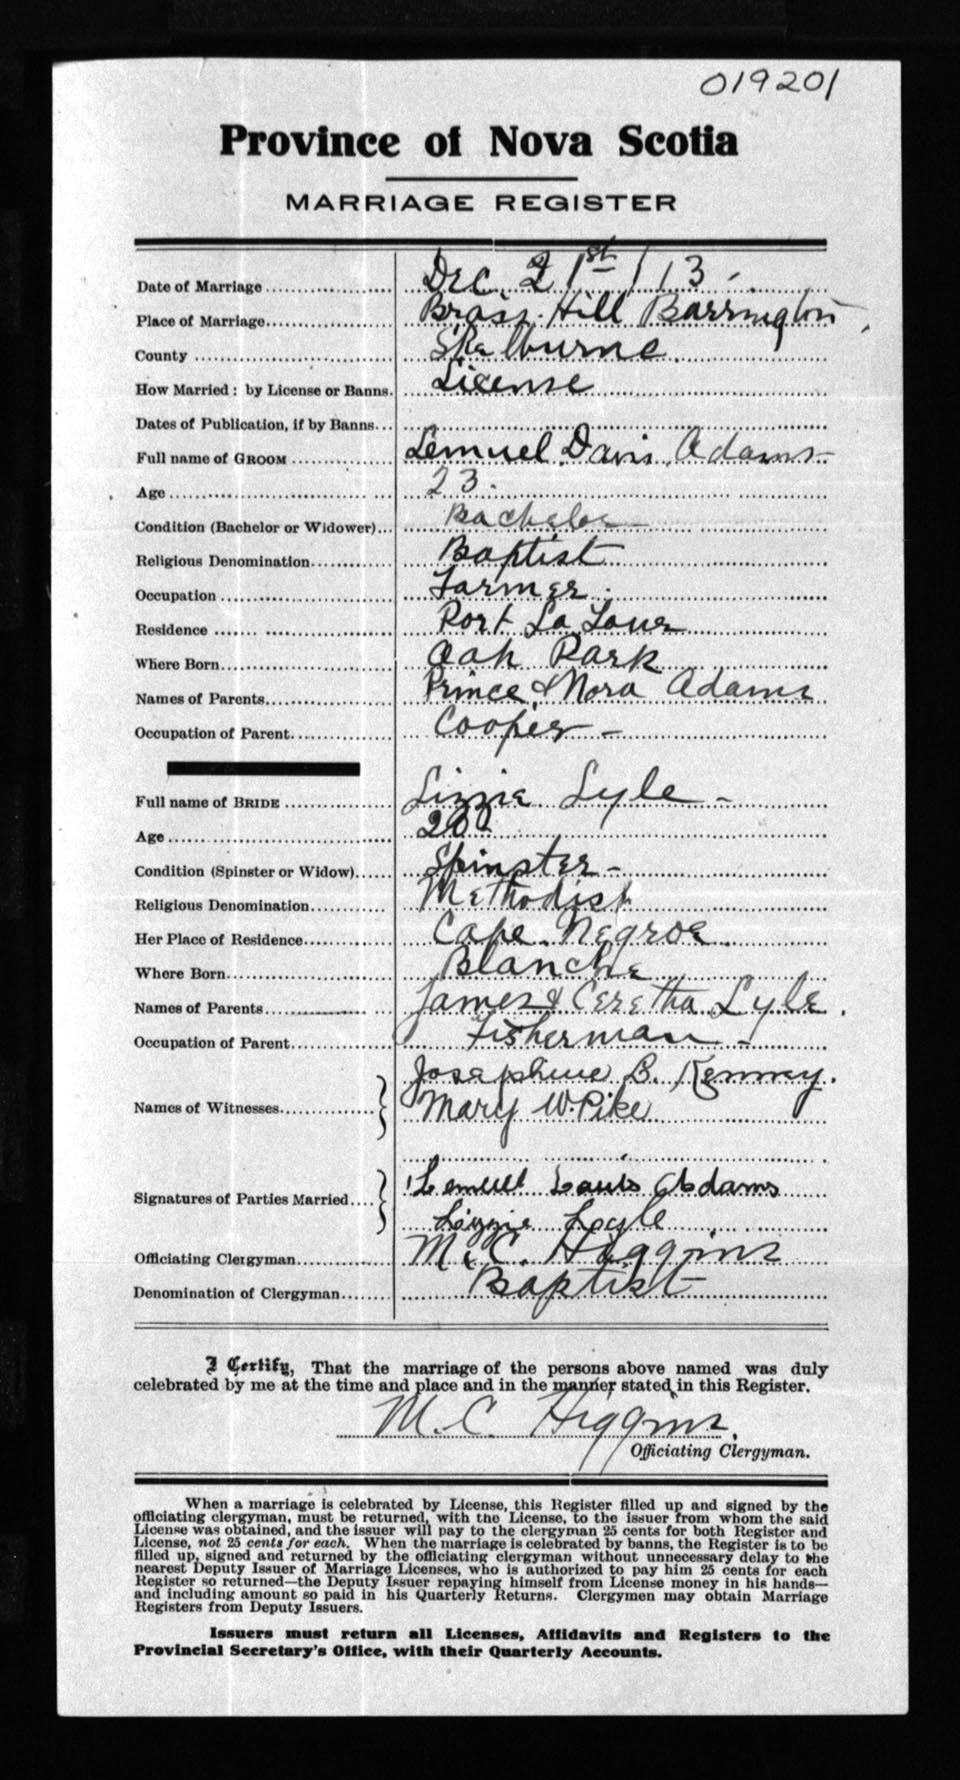 019201
Province of Nova Scotia
MARRIAGE REGISTER
Date of Marriage Dec 21st / 13 -
Place of Marriage Brass Hill Barrington
County Shelburne
How Married: by License or Banns. License
Dates of Publication, if by Banns
Full name of GROOM Lemuel Davis Adams
Age 23.
Condition (Bachelor or Widower) Bachelor
Religious Denomination Baptist
Occupation Farmer
Residence Port La Tour
Where Born Oak Park
Names of Parents Prince & Nora Adams
Occupation of Parent Cooper -
Full name of BRIDE Lizzie Lyle -
Age 20
Condition (Spinster or Widow) Spinster -
Religious Denomination Methodist
Her Place of Residence Cape Negroe
Where Born Blanche
Names of Parents James & Ceretha Lyle.
Occupation of Parent Fisherman -
Names of Witnesses Josephine B. Kenney.
Mary W. Pike
Signatures of Parties Married Lemuel Adams
Lizzie Lyle
Officiating Clergyman M.C. Higgins
Denomination of Clergyman Baptist
I Certify, That the marriage of the persons above named was duly
celebrated by me at the time and place and in the manner stated in this Register.
M.C. Higgins.
Officiating Clergyman.
When a marriage is celebrated by License, this Register filled up and signed by the
officiating clergyman, must be returned, with the License, to the issuer from whom the said
License was obtained, and the issuer will pay to the clergyman 25 cents for both Register and
License, not 25 cents for each. When the marriage is celebrated by banns, the Register is to be
filled up, signed and returned by the officiating clergyman without unnecessary delay to the
nearest Deputy Issuer of Marriage Licenses, who is authorized to pay him 25 cents for each
Register so returned—the Deputy Issuer repaying himself from License money in his hands—
and including amount so paid in his Quarterly Returns. Clergymen may obtain Marriage
Registers from Deputy Issuers.
Issuers must return all Licenses, Affidavits and Registers to the
Provincial Secretary's Office, with their Quarterly Accounts.